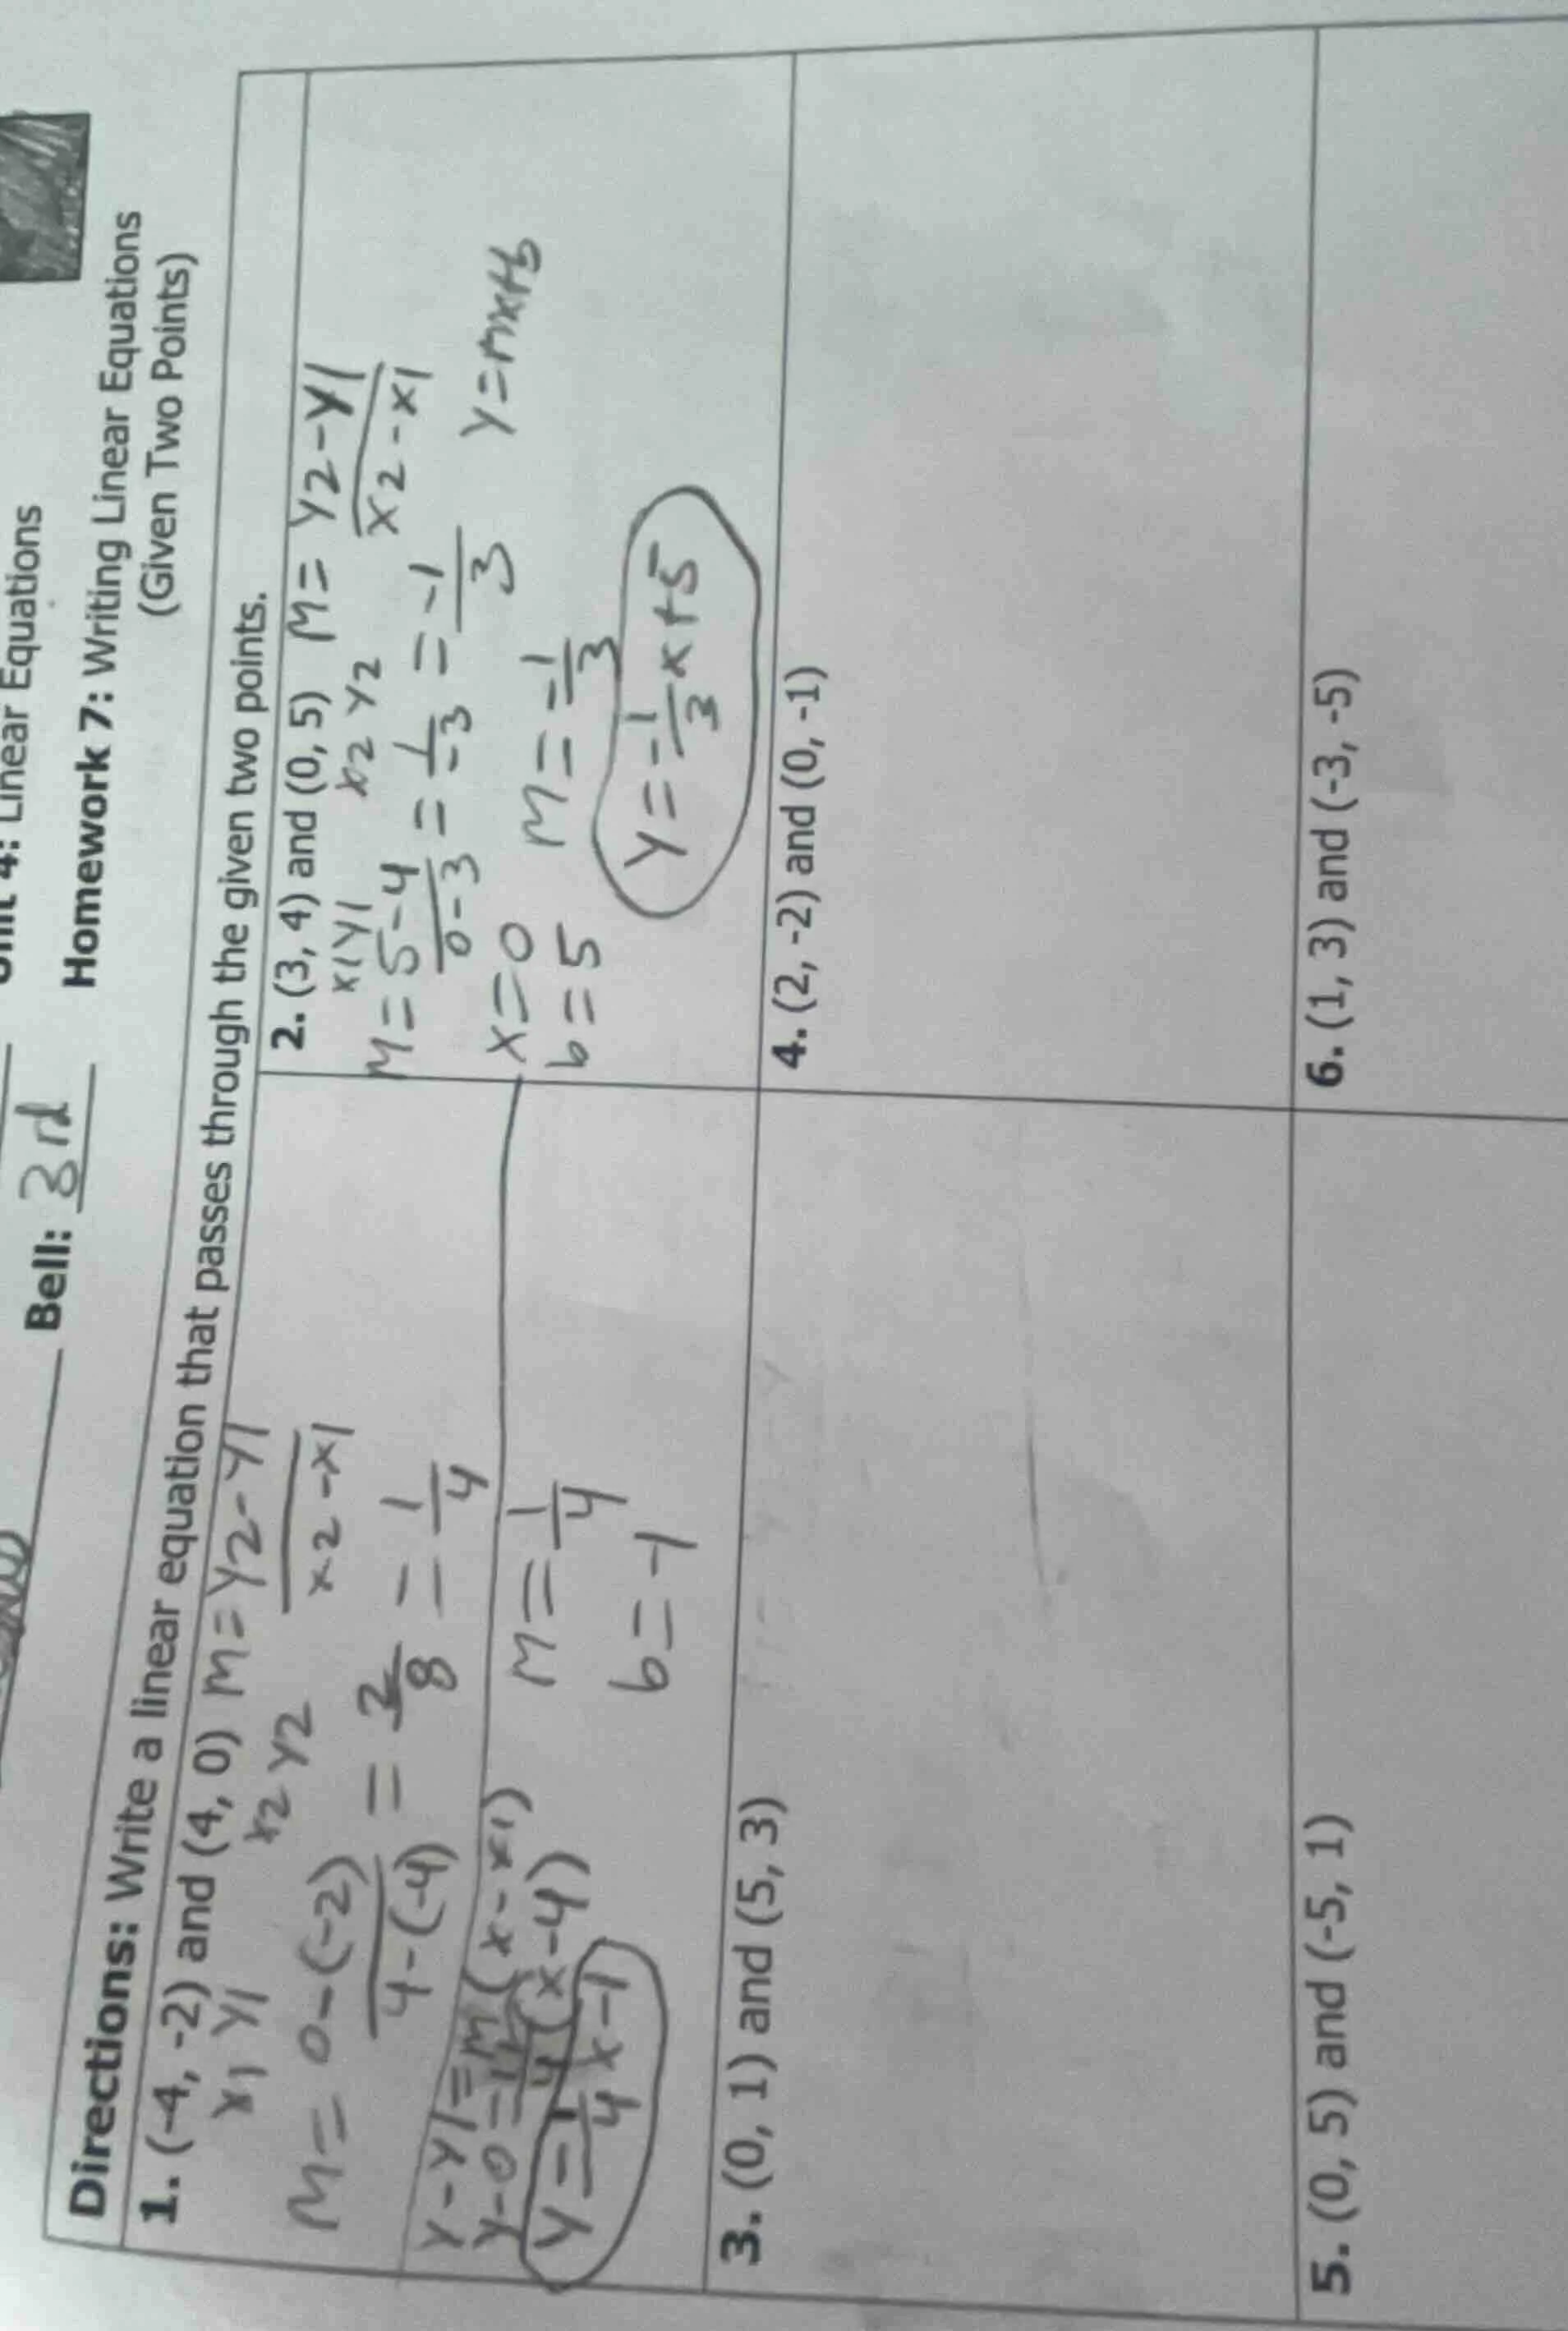 4: Linear Equations
Bell: 3rd
Homework 7: Writing Linear Equations
(Given Two Points)
Directions: Write a linear equation that passes through the given two points.
1. (-4, -2) and (4, 0) M = y2-y1
x1 y1 x2 y2 x2-x1
M = 0-(-2) = 2 = 1
4-(-4) 8 4
y-y1 = M(x-x1)
y-0 = 1/4(x-4)
M = 1/4
b = -1
y = 1/4x-1
2. (3, 4) and (0, 5) M = y2-y1
x1y1 x2 y2 x2-x1
M = 5-4 = 1 = -1
0-3 -3 3
y=mx+b
x=0 M = -1/3
b=5
y = -1/3x+5
3. (0, 1) and (5, 3)
4. (2, -2) and (0, -1)
5. (0, 5) and (-5, 1)
6. (1, 3) and (-3, -5)